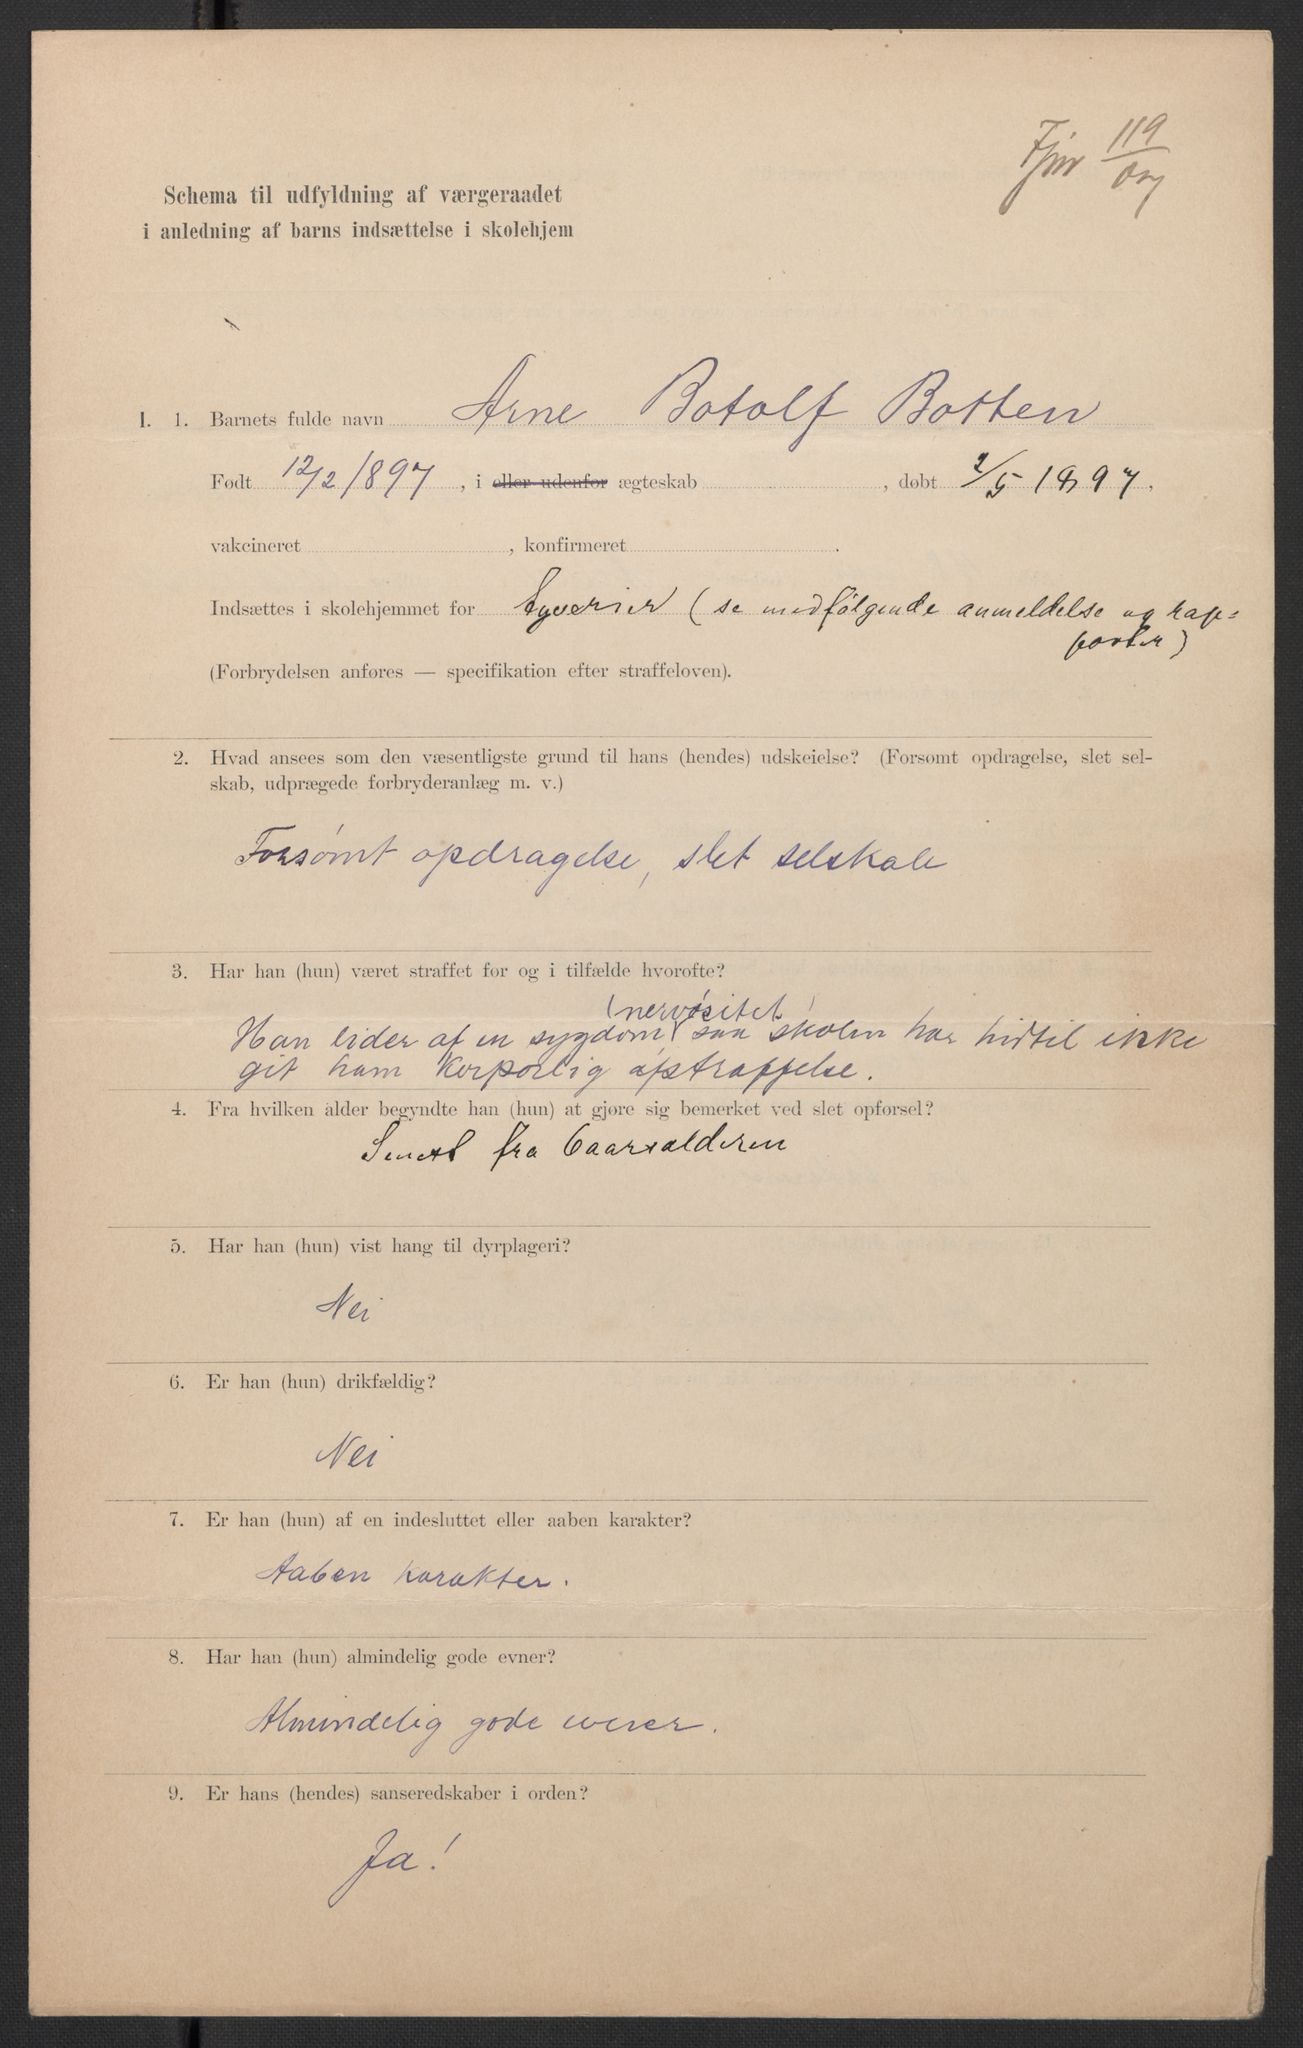 119
Schema til udfyldning af værgeraadet
i anledning af barns indsættelse i skolehjem
I. 1. Barnets fulde navn Arne Botolf Botten
Født 12/2 1897, i eller udenfor ægteskab , døbt 2/5 1897.
vakcineret , konfirmeret .
Indsættes i skolehjemmet for tyverier (se medfølgende anmeldelse og rap=
porter)
(Forbrydelsen anføres — specifikation efter straffeloven).
2. Hvad ansees som den væsentligste grund til hans (hendes) udskeielse? (Forsømt opdragelse, slet sel-
skab, udprægede forbryderanlæg m. v.)
Forsømt opdragelse, slet selskab
3. Har han (hun) været straffet før og i tilfælde hvorofte?
(nervøsitet)
Han lider af en sygdom, saa skolen har hidtil ikke
git ham korporlig afstraffelse.
4. Fra hvilken alder begyndte han (hun) at gjøre sig bemerket ved slet opførsel?
Senest fra 6aarsalderen
5. Har han (hun) vist hang til dyrplageri?
Nei
6. Er han (hun) drikfældig?
Nei
7. Er han (hun) af en indesluttet eller aaben karakter?
Aaben karakter.
8. Har han (hun) almindelig gode evner?
Almindelig gode evner.
9. Er hans (hendes) sanseredskaber i orden?
Ja!